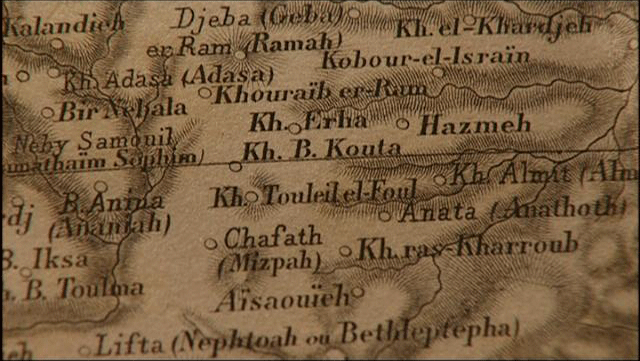 Kalandieh
Djeba (Geba)
Kh. el-Khardjeh
er Ram (Ramah)
Kobour-el-Israïn
Kh. Adasa (Adasa)
Khouraïb er-Ram
Bir Nebala
Kh. Erha
Hazmeh
Neby Samouil
Kh. B. Kouta
Sophim)
Kh. Almit (Alm
Kh. Touleil el-Foul
B. Anina
(Ananiah)
Anata (Anathoth)
Chafath
(Mizpah)
Kh. ras-Kharroub
B. Iksa
B. Toulma
Aïsaouïeh
Lifta (Nephtoah ou Bethleptepha)